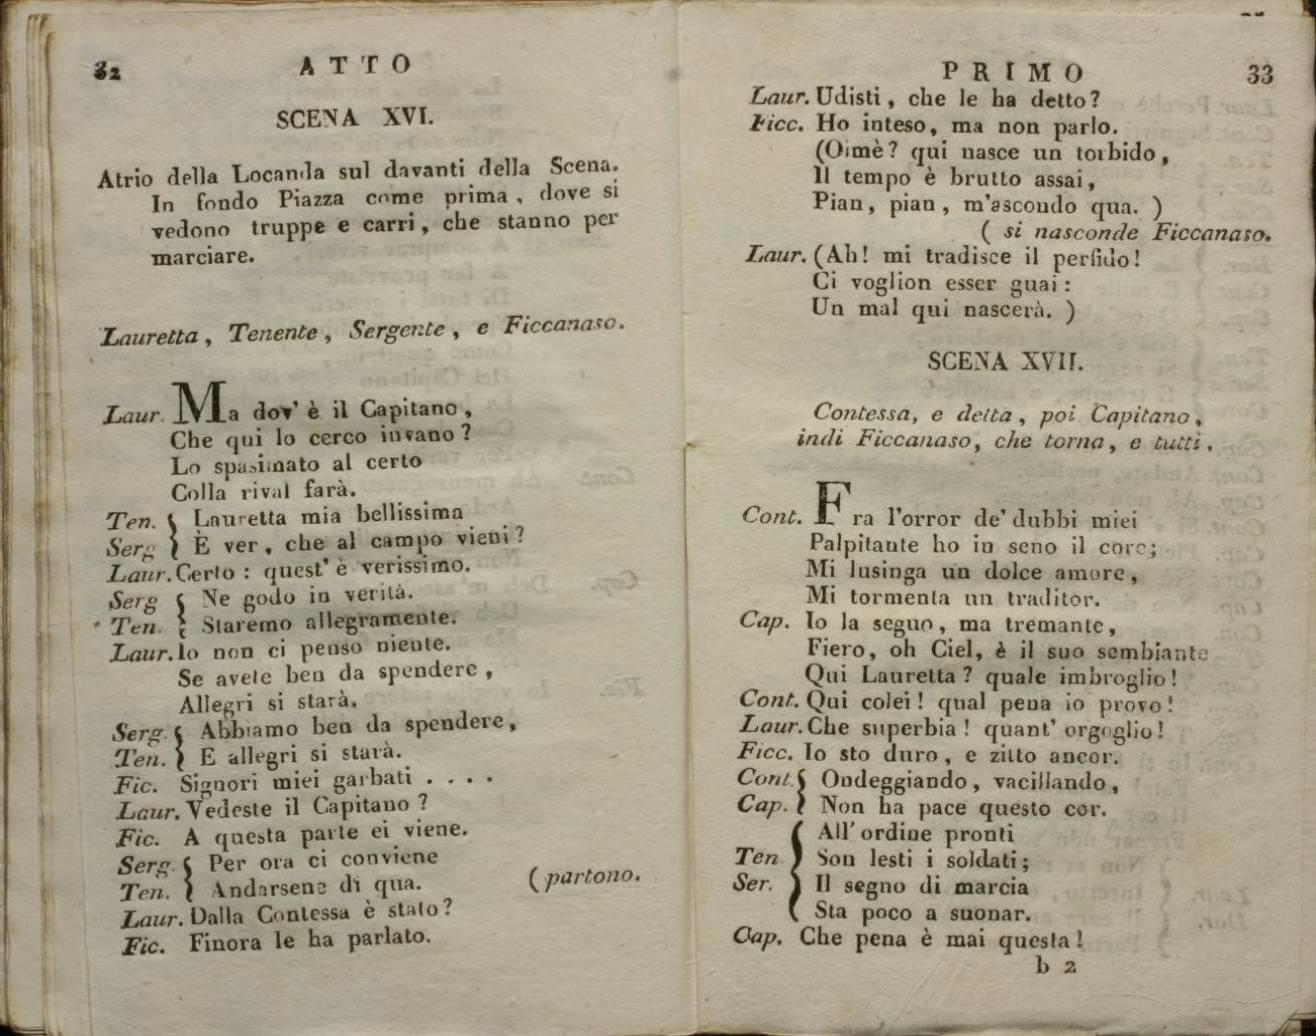 32
ATTO
SCENA XVI.
Atrio della Locanda sul davanti della Scena.
In fondo Piazza come prima, dove si
vedono truppe e carri, che stanno per
marciare.
Lauretta, Tenente, Sergente, e Ficcanaso.
Laur. Ma dov' è il Capitano,
Che qui lo cerco invano?
Lo spasimato al certo
Colla rival farà.
Ten. { Lauretta mia bellissima
Serg { È ver, che al campo vieni?
Laur. Certo: quest' è verissimo.
Serg { Ne godo in verità.
Ten. { Staremo allegramente.
Laur. Io non ci penso niente.
Se avete ben da spendere,
Allegri si starà.
Serg. { Abbiamo ben da spendere,
Ten. { E allegri si starà.
Fic. Signori miei garbati ....
Laur. Vedeste il Capitano?
Fic. A questa parte ei viene.
Serg { Per ora ci conviene
Ten. { Andarsene di qua. (partono.
Laur. Dalla Contessa è stato?
Fic. Finora le ha parlato.
PRIMO
33
Laur. Udisti, che le ha detto?
Ficc. Ho inteso, ma non parlo.
(Oimè? qui nasce un torbido,
Il tempo è brutto assai,
Pian, pian, m'ascondo qua. )
( si nasconde Ficcanaso.
Laur. (Ah! mi tradisce il perfido!
Ci voglion esser guai:
Un mal qui nascerà. )
SCENA XVII.
Contessa, e detta, poi Capitano,
indi Ficcanaso, che torna, e tutti.
Cont. Fra l'orror de' dubbi miei
Palpitante ho in seno il core;
Mi lusinga un dolce amore,
Mi tormenta un traditor.
Cap. Io la seguo, ma tremante,
Fiero, oh Ciel, è il suo sembiante
Qui Lauretta? quale imbroglio!
Cont. Qui colei! qual pena io provo!
Laur. Che superbia! quant' orgoglio!
Ficc. Io sto duro, e zitto ancor.
Cont. { Ondeggiando, vacillando,
Cap. { Non ha pace questo cor.
{ All' ordine pronti
Ten { Son lesti i soldati;
Ser. { Il segno di marcia
{ Sta poco a suonar.
Cap. Che pena è mai questa!
b 2